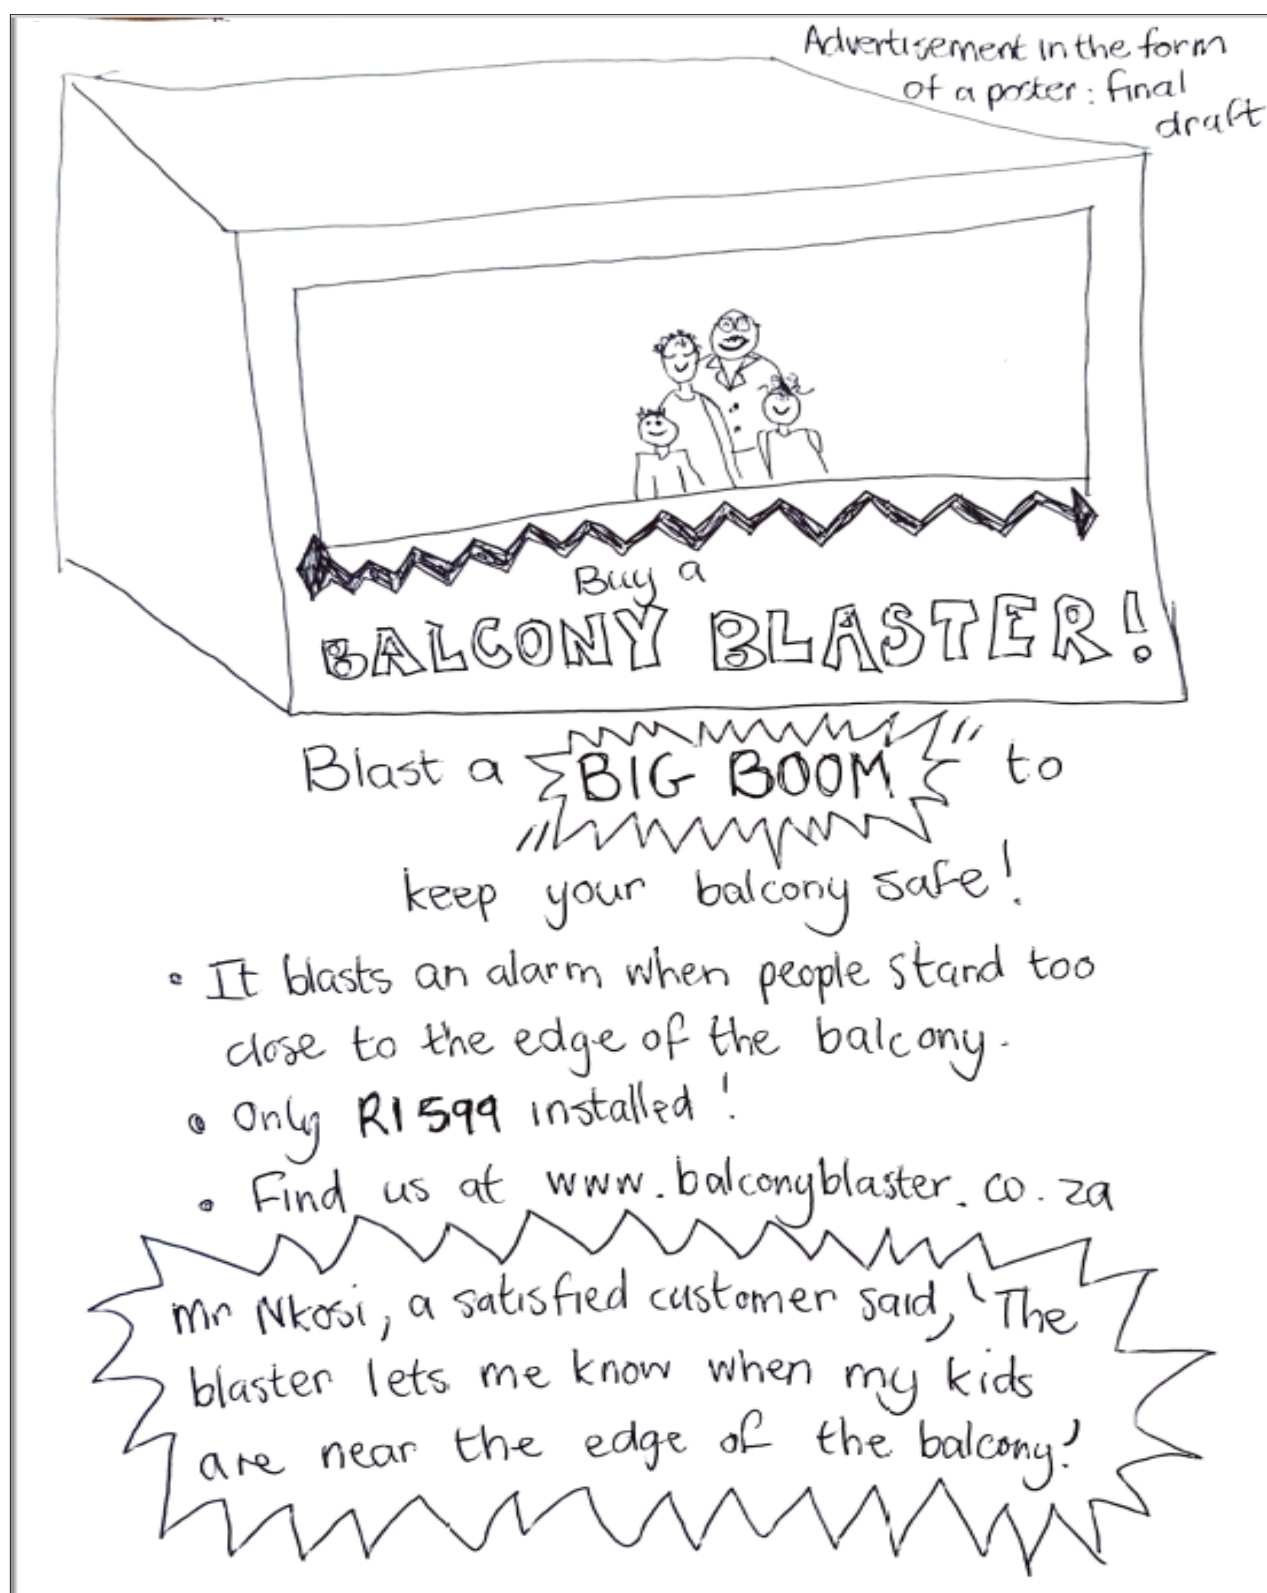 Advertisement in the form
of a poster: final
draft
Buy a
BALCONY BLASTER!
Blast a BIG BOOM to
keep your balcony safe!
• It blasts an alarm when people stand too
close to the edge of the balcony.
• Only R1599 installed!
• Find us at www.balconyblaster.co.za
Mr Nkosi, a satisfied customer said, 'The
blaster lets me know when my kids
are near the edge of the balcony.'